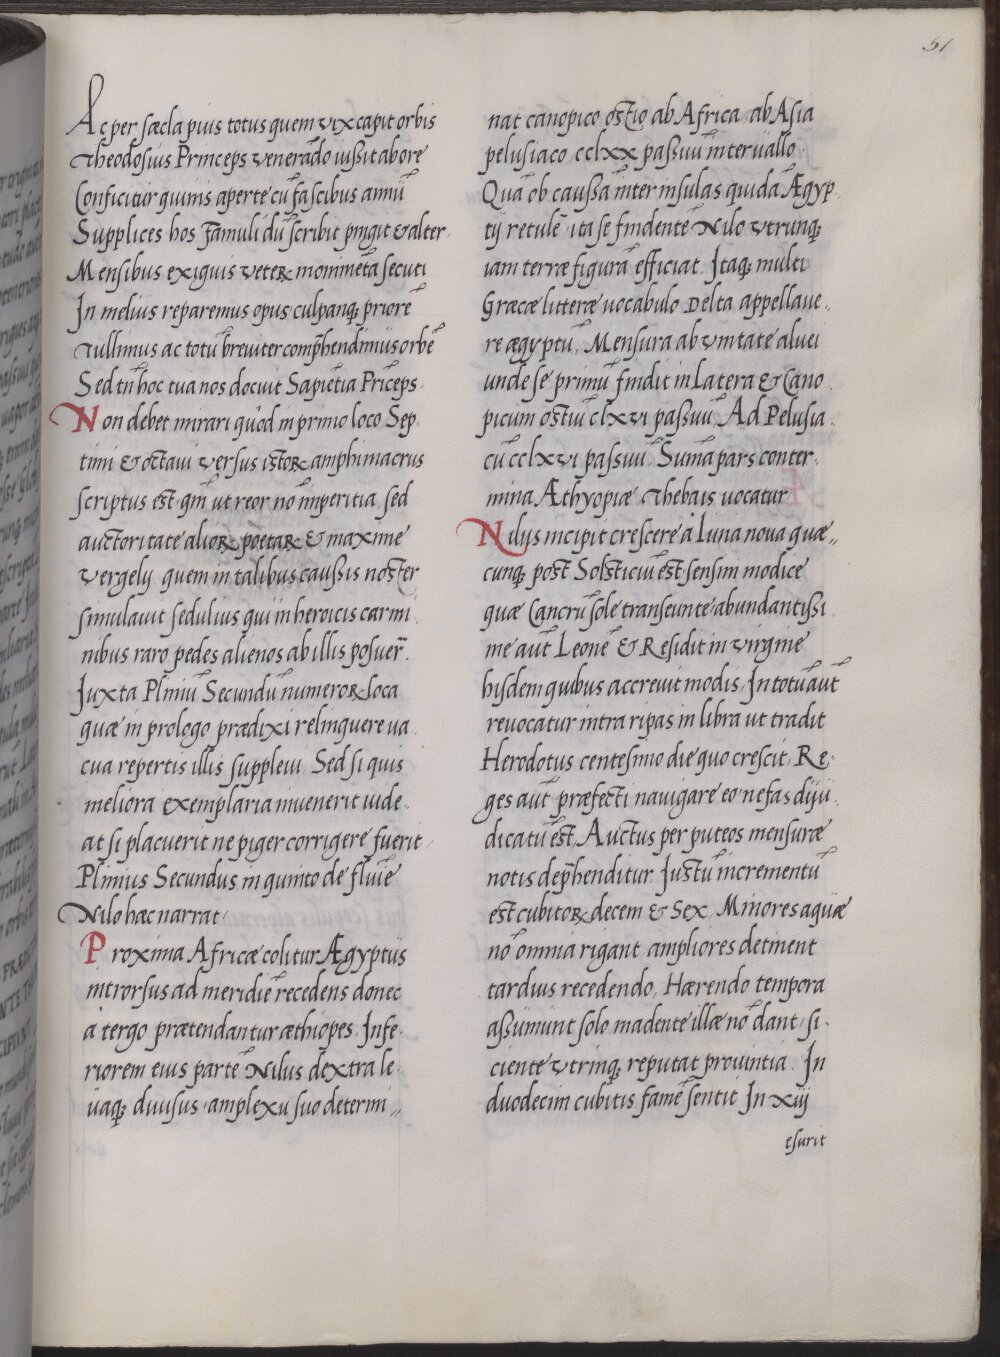 51
Ac per sæcla pius totus quem vix capit orbis
Theodosius Princeps venerādo iussit ab ore
Confici ter quinis aperte cū fascibus annū
Supplices hos Famuli dū scribit pingit & alter
Mensibus exiguis veterꝝ monimēta secuti
In melius reparemus opus culpanq; priorē
Tullimus ac totū breviter comp̄hendimus orbē
Sed tn̄ hoc tua nos docuit Sapiētia Prīceps.
Non debet mirari quòd in primo loco Sep
timi & octavi versus istoꝝ amphimacrus
scriptus est. qm̄ ut reor nō imperitia, sed
auctoritate alioꝝ poetaꝝ & maxime
Vergely quem in talibus caussis noster
simulavit sedulius qui in heroicis carmi
nibus raro pedes alienos ab illis posuer̄.
Iuxta Pliniū Secundū numeroꝝ loca
quæ in prologo prædixi relinquere va
cua repertis illis supplevi. Sed si quis
meliora exemplaria invenerit vide
at si placuerit ne piger corrigere fuerit
Plinius Secundus in quinto de fluīe
Nilo hæc narrat.
Proxima Africæ colitur Ægyptus
introrsus ad meridiē recedens donec
à tergo prætendantur æthiopes. Infe
riorem eius partē Nilus dextra le
vaq; divisus amplexu suo determi,,
nat canopico ostio ab Africa, ab Asia
pelusiaco cclxx passuū intervallo.
Quā ob caussā inter insulas quidā Ægyp
tij retulē ita se findente Nilo utrunq;
iam terræ figurā efficiat. Itaq; multi
Græcæ litteræ vocabulo Delta appellave
re ægyptū. Mensura ab unitate alvei
unde se primū findit in Latera & Cano
picum ostiū clxvi passuū, Ad Pelusia
cū cclxvi passuū. Sūma pars conter
mina Æthyopiæ Thebais vocatur
Nilus incipit crescere à Luna nova quæ,,
cunq; post Solsticiū est sensim modice
quæ Cancrū sole transeunte abundantissi
me aut̄ Leonē & Residit in virgine
hisdem quibus accrevit modis. In totū aut̄
revocatur intra ripas in libra ut tradit
Herodotus centesimo die quo crescit. Re
ges aut̄ præfecti navigare eo nefas dijū
dicatū est. Auctus per puteos mensuræ
notis dep̄henditur Iustū incrementū
est cubitoꝝ decem & Sex. Minores aquæ
nō omnia rigant ampliores detinent
tardius recedendo. Hærendo tempora
assumunt solo madente illæ nō dant si
ciente utrinq; reputat provintia. In
duodecim cubitis famē sentit In xiij
esurit